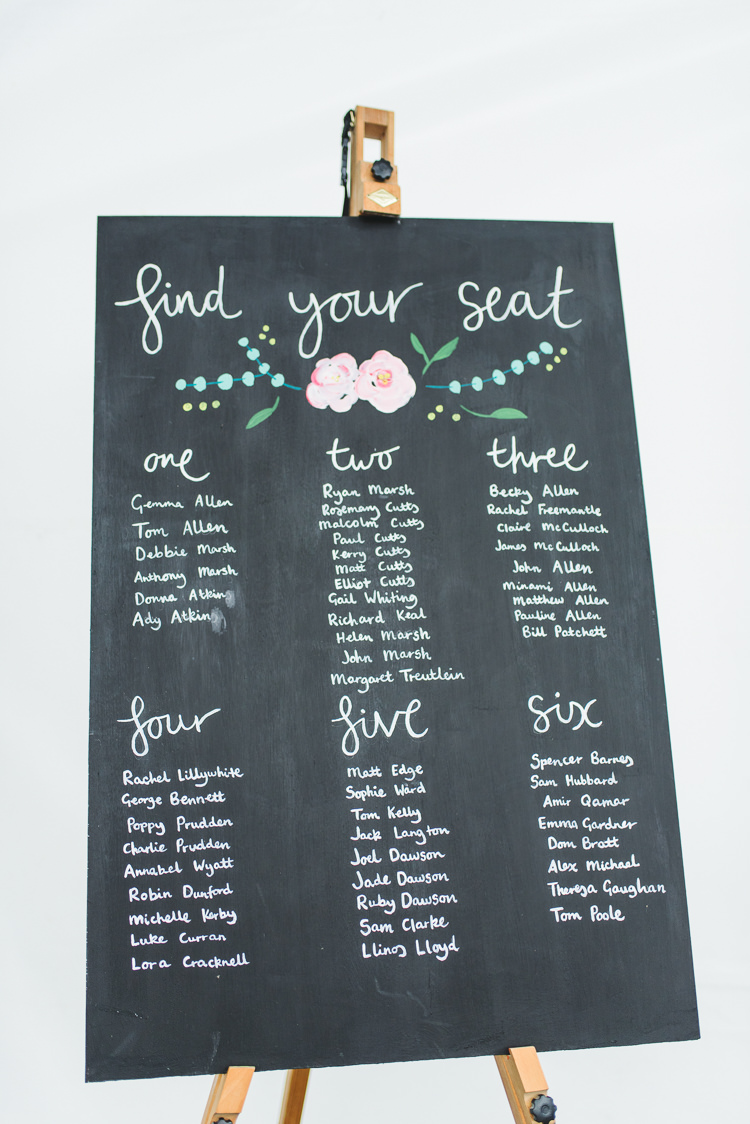 find your seat
one
Gemma Allen
Tom Allen
Debbie Marsh
Anthony Marsh
Donna Atkin
Ady Atkin
two
Ryan Marsh
Rosemary Cutts
Malcolm Cutts
Paul Cutts
Kerry Cutts
Matt Cutts
Elliot Cutts
Gail Whiting
Richard Keal
Helen Marsh
John Marsh
Margaret Treutlein
three
Becky Allen
Rachel Freemantle
Claire McCulloch
James McCulloch
John Allen
Minami Allen
Matthew Allen
Pauline Allen
Bill Patchett
four
Rachel Lillywhite
George Bennett
Poppy Prudden
Charlie Prudden
Annabel Wyatt
Robin Dunford
Michelle Kerby
Luke Curran
Lora Cracknell
five
Matt Edge
Sophie Ward
Tom Kelly
Jack Langton
Joel Dawson
Jade Dawson
Ruby Dawson
Sam Clarke
Llinos Lloyd
six
Spencer Barnes
Sam Hubbard
Amir Qamar
Emma Gardner
Dom Bratt
Alex Michael
Theresa Gaughan
Tom Poole